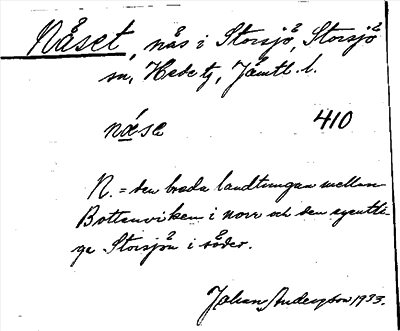 Nåset, nås i Storsjö, Storsjö
sn, Hede tg, Jämtl. l.
nåse 410
N. = den breda landtungan mellan
Bottenviken i norr och den egentli-
ga Storsjön i söder.
Johan Andersson 1933.